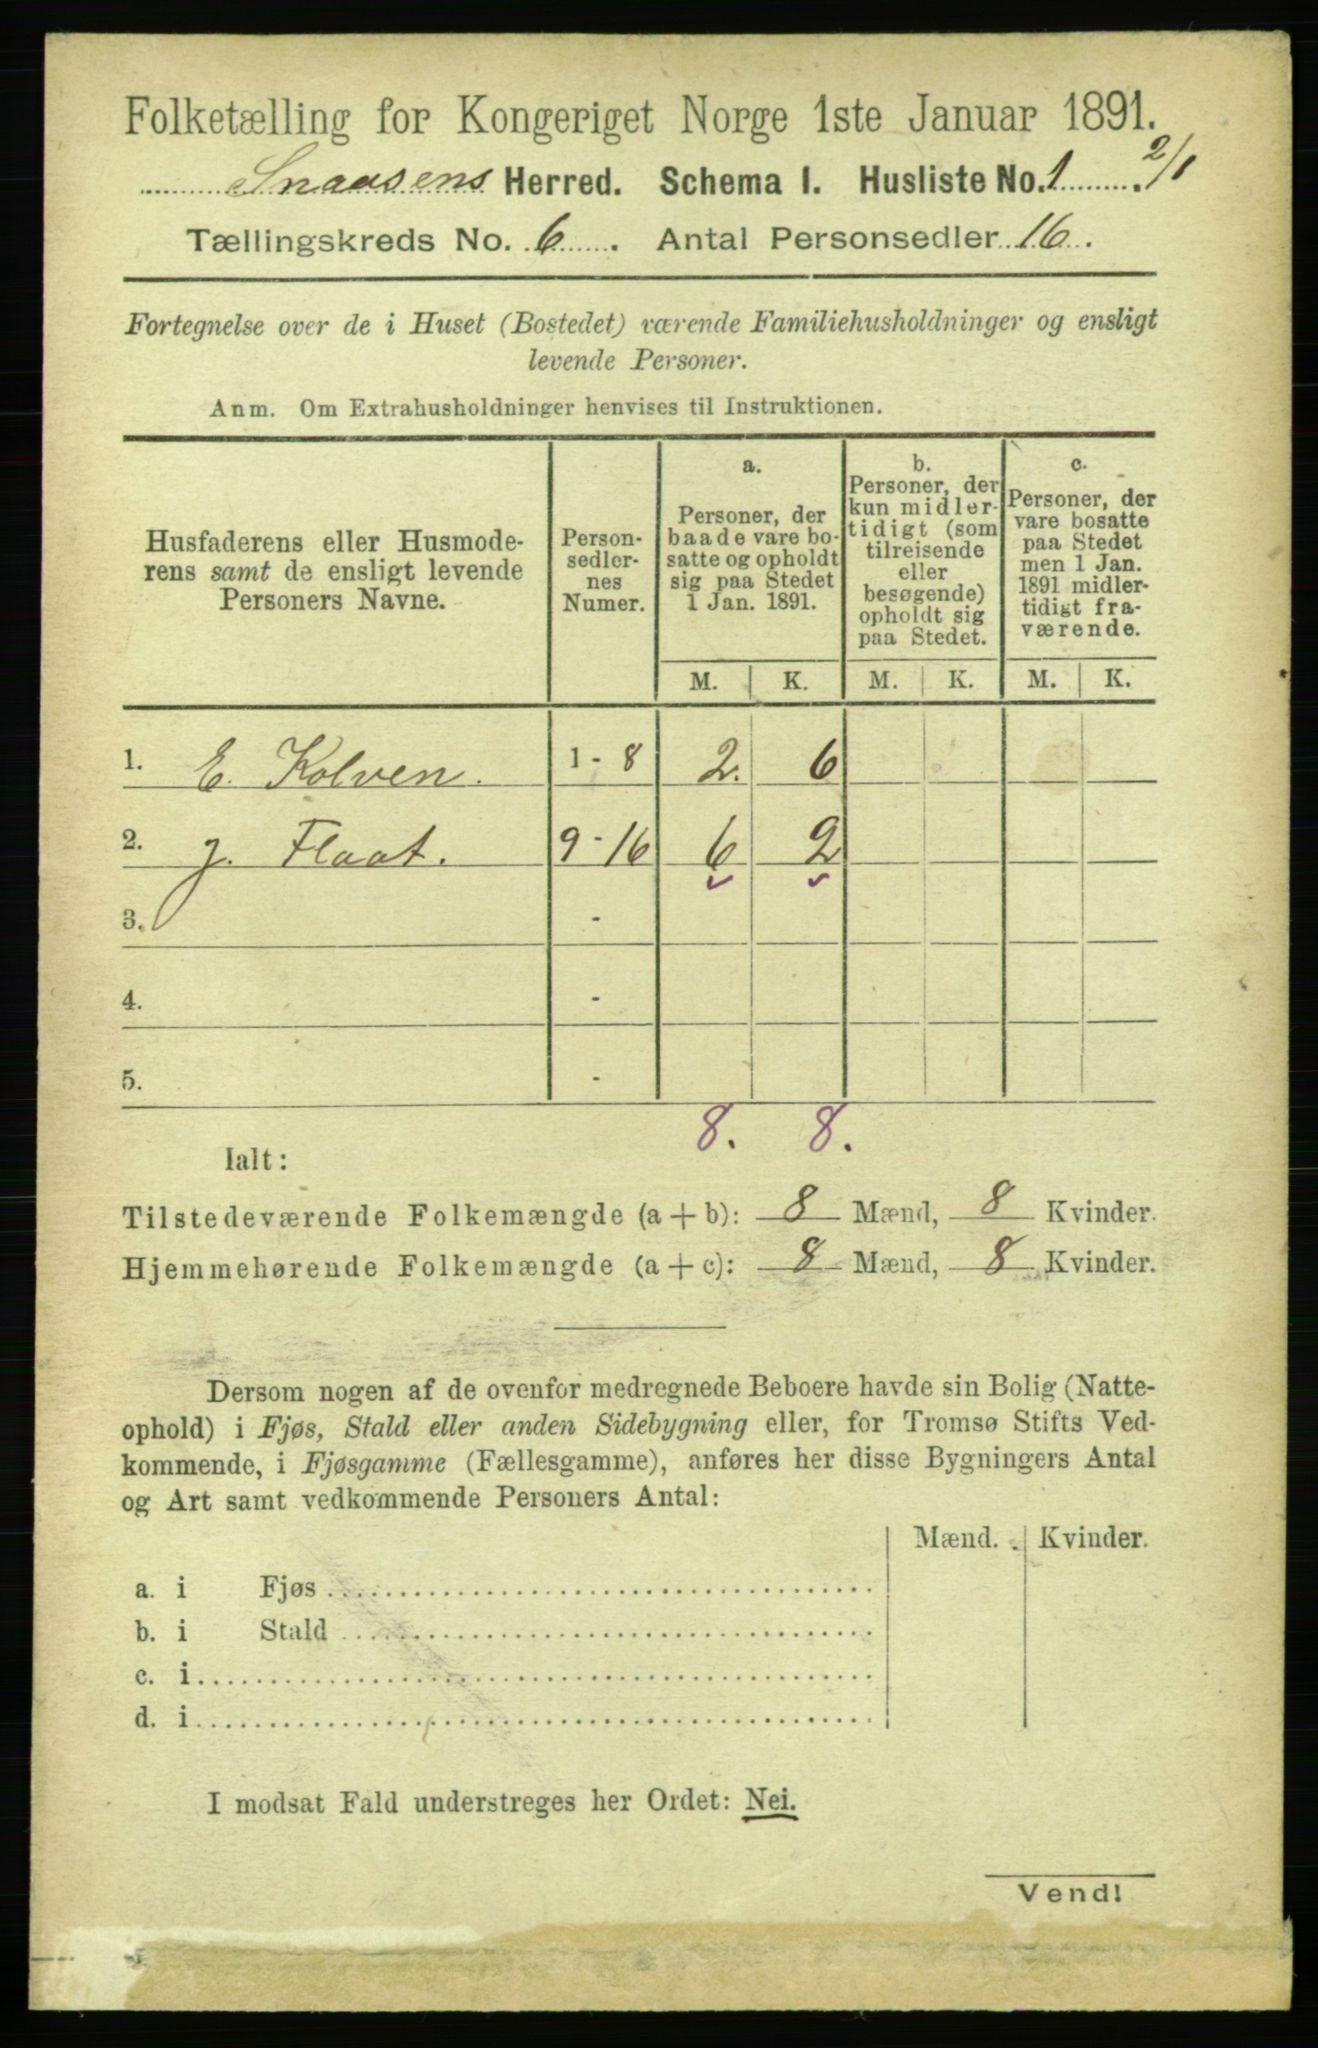 Folketælling for Kongeriget Norge 1ste Januar 1891.
Snaasens Herred. Schema I. Husliste No. 1. 2/1
Tællingskreds No. 6. Antal Personsedler 16.
Fortegnelse over de i Huset (Bostedet) værende Familiehusholdninger og ensligt
levende Personer.
Anm. Om Extrahusholdninger henvises til Instruktionen.
Husfaderens eller Husmode-
rens samt de ensligt levende
Personers Navne.
Person-
sedler-
nes
Numer.
a.
Personer, der
baade vare bo-
satte og opholdt
sig paa Stedet
1 Jan. 1891.
b.
Personer, der
kun midler-
tidigt (som
tilreisende
eller
besøgende)
opholdt sig
paa Stedet.
c.
Personer, der
vare bosatte
paa Stedet
men 1 Jan.
1891 midler-
tidigt fra-
værende.
M. K. M. K. M. K.
1. E. Kolven. 1-8 2. 6
2. J. Flaat. 9-16 6 2
3. -
4. -
5. -
8. 8.
Ialt:
Tilstedeværende Folkemængde (a + b): 8 Mænd, 8 Kvinder.
Hjemmehørende Folkemængde (a + c): 8 Mænd, 8 Kvinder.
Dersom nogen af de ovenfor medregnede Beboere havde sin Bolig (Natte-
ophold) i Fjøs, Stald eller anden Sidebygning eller, for Tromsø Stifts Ved-
kommende, i Fjøsgamme (Fællesgamme), anføres her disse Bygningers Antal
og Art samt vedkommende Personers Antal:
Mænd. Kvinder.
a. i Fjøs
b. i Stald
c. i
d. i
I modsat Fald understreges her Ordet: Nei.
Vend!